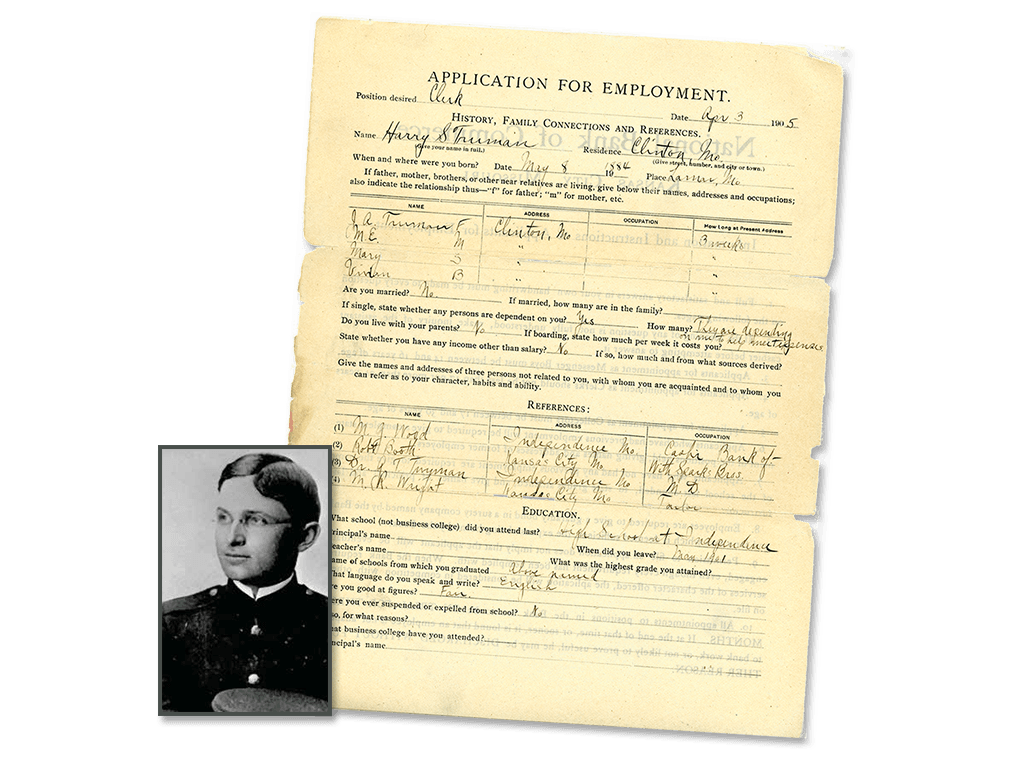 APPLICATION FOR EMPLOYMENT.
Position desired Clerk
Date Apr 3 1905
HISTORY, FAMILY CONNECTIONS AND REFERENCES.
Name Harry S Truman Residence Clinton, Mo.
(Give your name in full.) (Give street, number, and city or town.)
When and where were you born? Date May 8 1884 19 Place Lamar, Mo.
If father, mother, brothers, or other near relatives are living, give below their names, addresses and occupations;
also indicate the relationship thus—"f" for father; "m" for mother, etc.
NAME ADDRESS OCCUPATION How Long at Present Address
J. A. Truman F Clinton, Mo 3 weeks
M.E. M " "
Mary S " "
Vivian B " "
Are you married? No. If married, how many are in the family?
If single, state whether any persons are dependent on you? Yes How many? They are depending
on me to help meet expenses
Do you live with your parents? No If boarding, state how much per week it costs you?
State whether you have any income other than salary? No If so, how much and from what sources derived?
Give the names and addresses of three persons not related to you, with whom you are acquainted and to whom you
can refer as to your character, habits and ability.
REFERENCES:
NAME ADDRESS OCCUPATION
(1) Wood Independence Mo. Bank of
(2) Robt Booth Kansas City Mo With Bros.
(3) Dr. G T Twyman Independence Mo M D
(4) M. R. Wright Kansas City Mo
EDUCATION.
What school (not business college) did you attend last? High School at Independence
rincipal's name When did you leave? May 1901
eacher's name What was the highest grade you attained?
ame of schools from which you graduated Above named
hat language do you speak and write? English
re you good at figures? Fair.
ere you ever suspended or expelled from school? No
so, for what reasons?
hat business college have you attended?
incipal's name